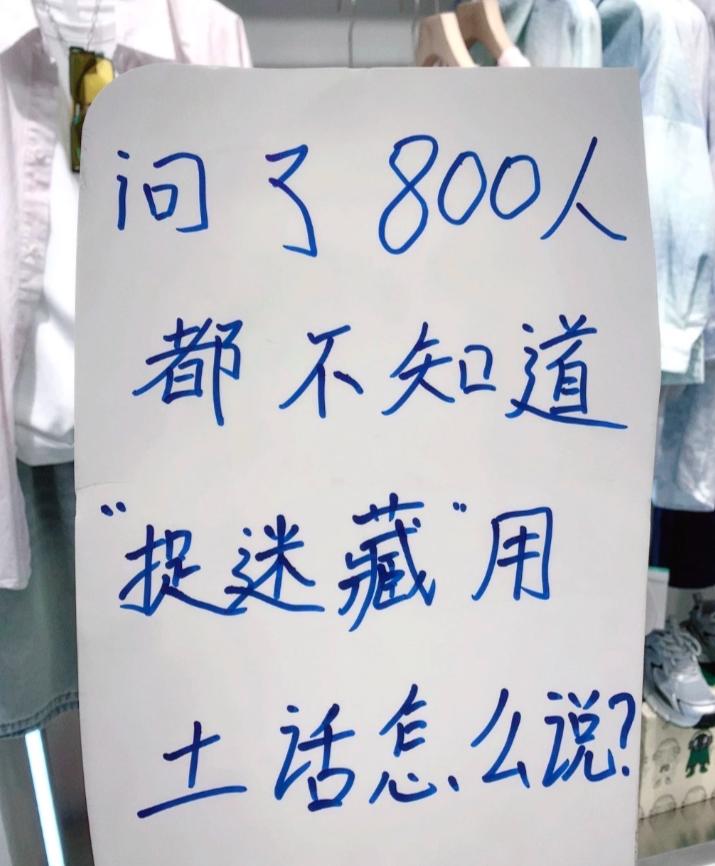 问了800人
都不知道
"捉迷藏"用
土话怎么说?